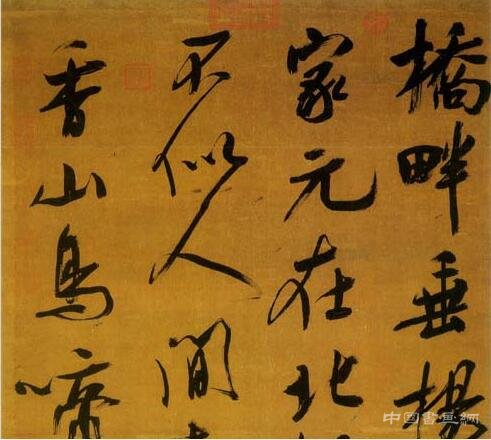 橋畔垂楊
家元在北
不似人間
香山鳥啼
中国書画網